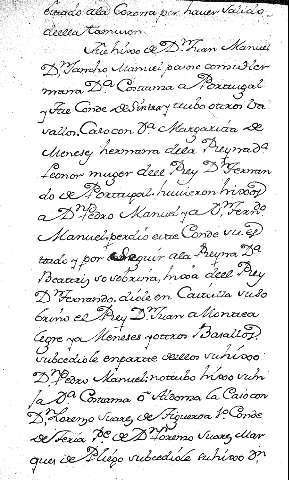 entrado ala Corona por haver salido
deella tamuion.
Fue hixo de Dn Juan Manuel
Dn Sancho Manuel paso con su her
mana Da Costama a Portugal
y fue Conde de Sintra y tubo otros ba
sallos. Caso con Da Margarita de
Meneses hermana dela Reyna da
Leonor muger del Rey Dn Fernan
do de Portugal. huvieron hixos
a Dn Pedro Manuel ya Dn Ferndo
Manuel perdio este Conde su es
tado y por seguir ala Reyna Da
Beatris, so sobrina, hixa del Rey
Dn Fernando. diole en Castilla su so
brino el Rey Dn Juan a Montea
legre ya Meneses y otros Basallos
subcediole en parte dellos su hixo
Dn Pedro Manuel. no tubo hixo su hi
ja Da Costama o Aldonza la Caso con
Dn Lorenzo Suares de Figueroa 1o Conde
de Feria Pe de Dn Lorenzo Suares Mar
ques de Pliego subcediole su hixo Dn